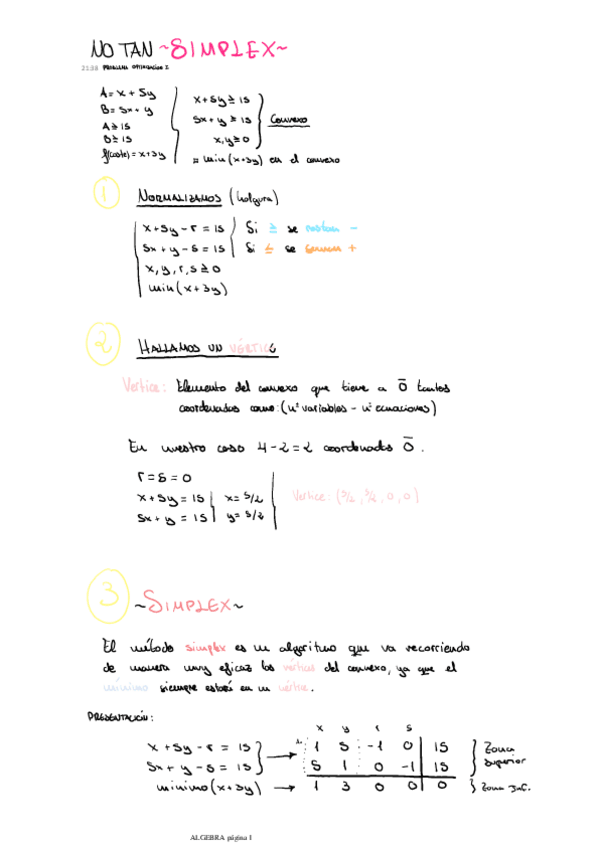 NO TAN ~SIMPLEX~
21:38 PROBLEMA OPTIMIZACIÓN 2
A = x + 5y
B = 5x + y
A ≥ 15
B ≥ 15
f(coste) = x+3y
x+5y ≥ 15
5x + y ≥ 15
x,y ≥ 0
Convexo
min (x+3y) en el convexo
1 NORMALIZAMOS (holgura)
x + 5y - r = 15
5x + y - s = 15
x, y, r, s ≥ 0
min(x+3y)
Si ≥ se restan -
Si ≤ se suman +
2 HALLAMOS UN VÉRTICE
Vértice: Elemento del convexo que tiene a 0̄ tantas
coordenadas como: (nº variables - nº ecuaciones)
En nuestro caso 4-2=2 coordenadas 0̄.
r = s = 0
x + 5y = 15 | x = 5/2
5x + y = 15 | y = 5/2
Vértice: (5/2, 5/2, 0, 0)
3 ~SIMPLEX~
El método simplex es un algoritmo que va recorriendo
de manera muy eficaz los vértices del convexo, ya que el
mínimo siempre estará en un vértice.
PRESENTACIÓN:
x y r s
x + 5y - r = 15 → 1 5 -1 0 15
5x + y - s = 15 5 1 0 -1 15
Zona superior
mínimo (x+3y) → 1 3 0 0 0 Zona Inf.
ALGEBRA página 1